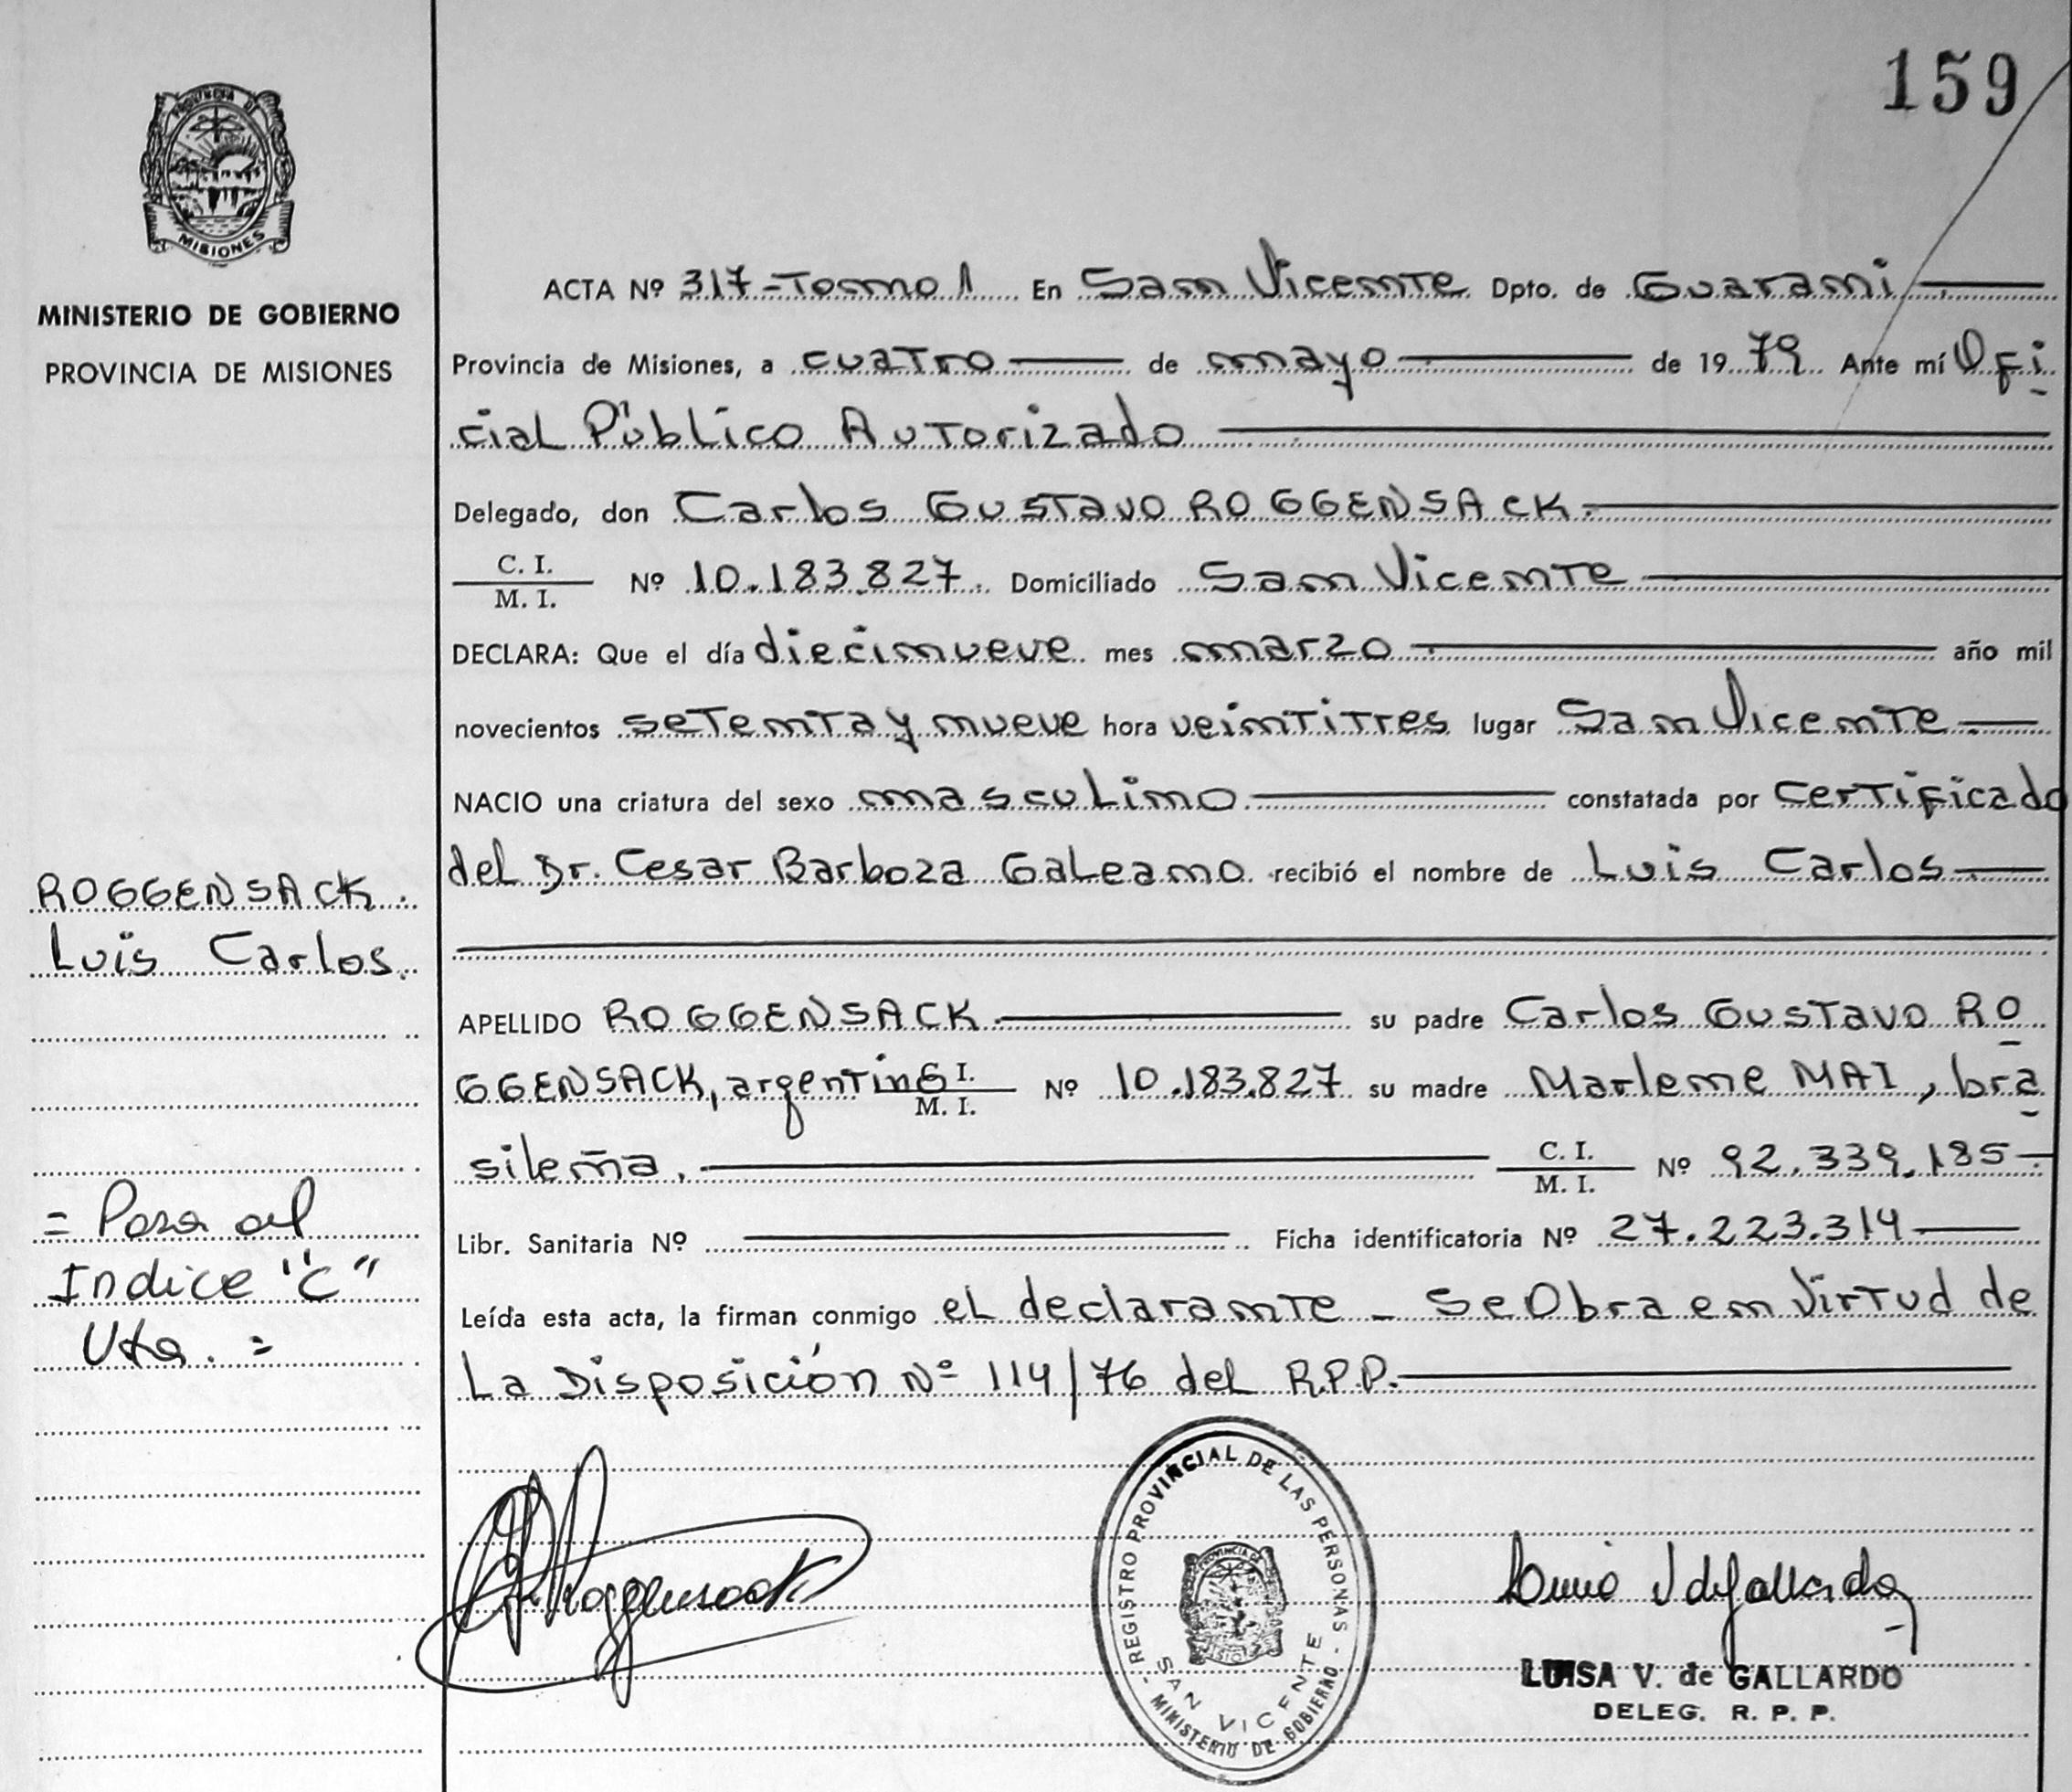 159
PROVINCIA DE
MISIONES
MINISTERIO DE GOBIERNO
PROVINCIA DE MISIONES
ACTA Nº 317-Tomo 1 En San Vicente Dpto. de Guaraní
Provincia de Misiones, a cuatro de mayo de 1979 Ante mí Ofi
cial Público Autorizado
Delegado, don Carlos Gustavo ROGGENSACK.
C. I.
M. I. Nº 10.183.827. Domiciliado San Vicente
DECLARA: Que el día diecinueve mes marzo año mil
novecientos setenta y nueve hora veintitres lugar San Vicente
NACIO una criatura del sexo masculino constatada por certificado
del Dr. Cesar Barboza Galeano recibió el nombre de Luis Carlos
ROGGENSACK.
Luis Carlos.
APELLIDO ROGGENSACK su padre Carlos Gustavo RO
GGENSACK, argentino C. I.
M. I. Nº 10.183.827 su madre Marlene MAI, bra
sileña. C. I.
M. I. Nº 92.339.185
Libr. Sanitaria Nº Ficha identificatoria Nº 27.223.314
Leída esta acta, la firman conmigo el declarante - Se Obra en Virtud de
La Disposición Nº 114/76 del R.P.P.
= Pasa al
Indice "C"
Vta. =
Roggensack
REGISTRO PROVINCIAL DE LAS PERSONAS
PROVINCIA DE
MISIONES
SAN VICENTE
- MINISTERIO DE GOBIERNO -
Luisa V de Gallardo
LUISA V. de GALLARDO
DELEG. R. P. P.